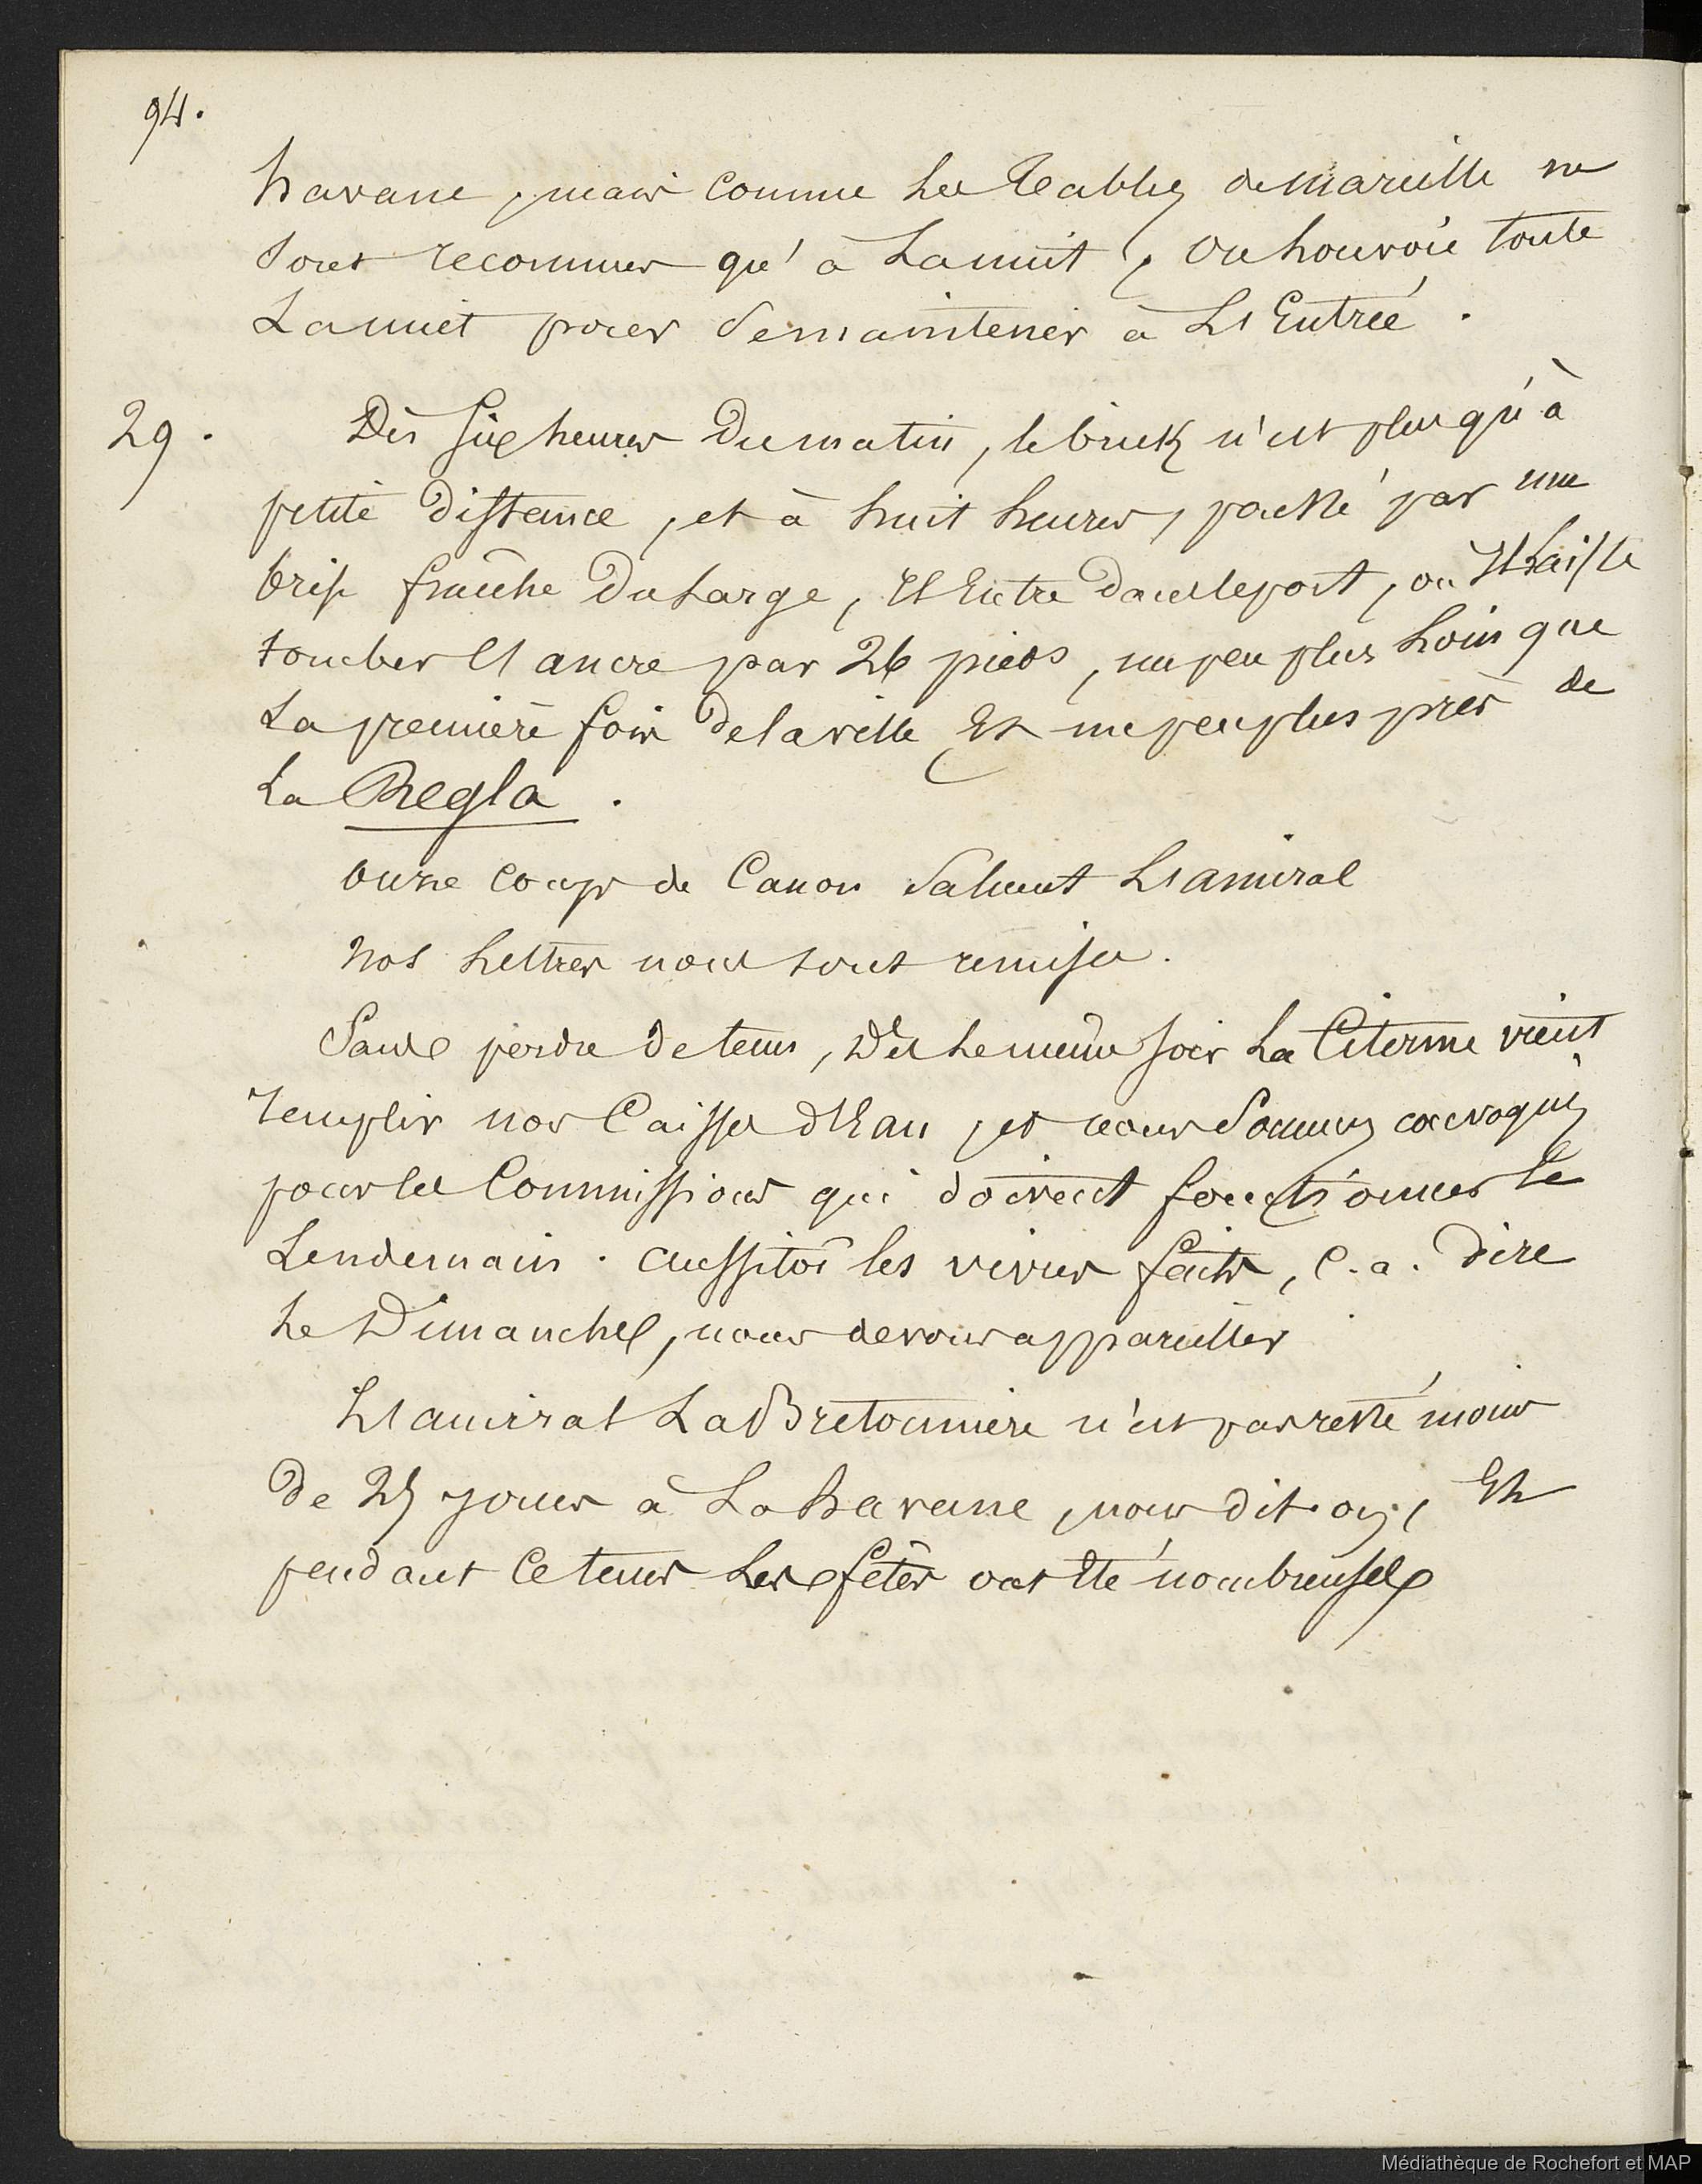 94.
havane, mais comme les Tables de Mareille ne
sont reconnues qu'à La nuit, on louvoie toute
La nuit pour se maintenir à L'Entrée.
29. Dès six heures du matin, le brick n'est plus qu'à
petite distance, et à huit heures, par une
brise fraîche du Large, Il Entre dans le port, où Il laisse
tomber l'ancre par 26 pieds, un peu plus Loin que
La première fois de la ville Et un peu plus près de
La Regla.
onze coups de Canon saluent L'amiral
Nos Lettres nous sont remises.
Sans perdre de tems, Dès Le même soir La Citerne vient
remplir nos Caisses d'Eau, et nous sommes convoqués
pour les Commissions qui doivent fonctionner Le
Lendemain. aussitôt les vivres faits, c.a. dire
Le Dimanche, nous devons appareiller
L'amiral La Bretonnière n'est pas resté moins
de 25 jours à La havane, nous dit-on, Et
pendant Ce tems Les fêtes ont Eté nombreuses
Médiathèque de Rochefort et MAP